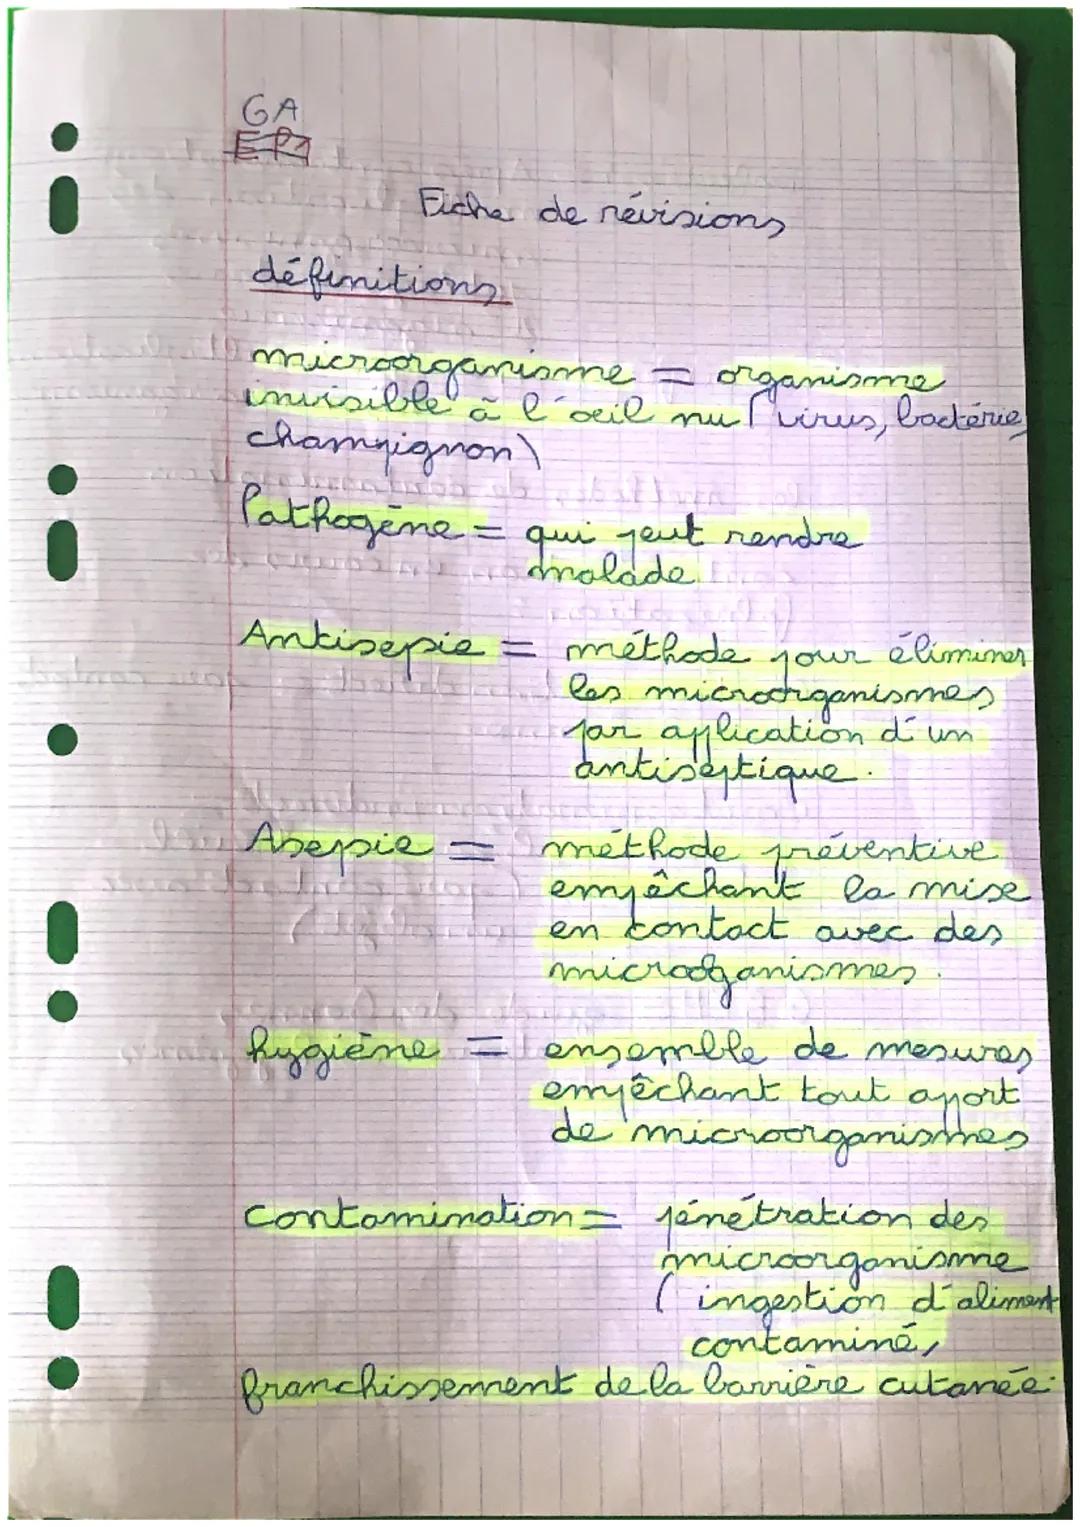 GA
Fiche de révisions
définitions
microorganisme = organisme
invisible à l'oeil nu (virus, bactérie,
champignon)
Pathogène = qui peut rendre
malade.
Antisepie = méthode pour éliminer
les microorganismes
par application d'un
antiseptique.
Asepie = méthode préventive
empêchant la mise
en contact avec des
microoganismes.
hygiène = ensemble de mesures
empêchant tout apport
de microorganismes
contamination = pénétration des
microorganisme
(ingestion d'aliment
contaminé,
franchissement de la barrière cutanée.